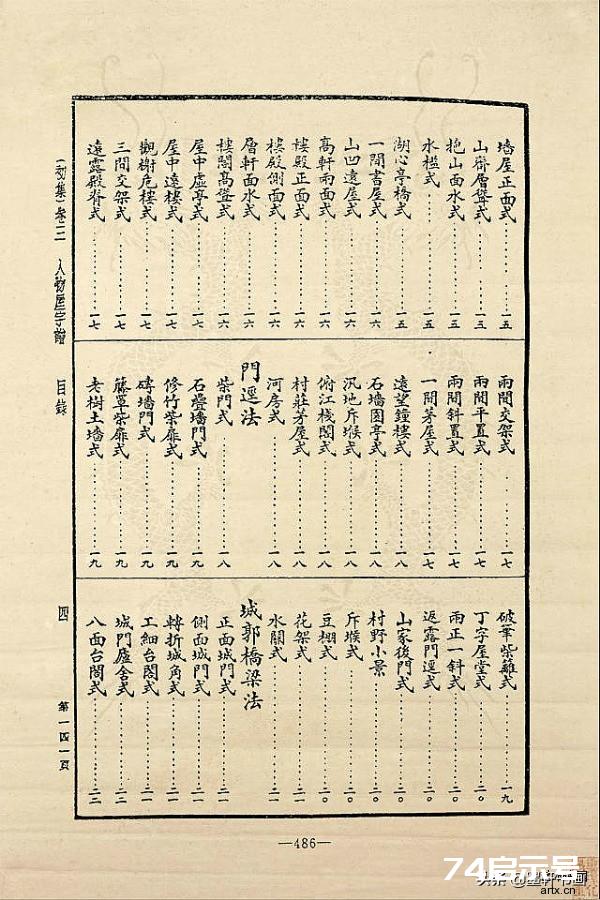 墻屋正面式 一五
山齋層聳式 一五
抱山面水式 一五
水檻式 一五
湖心亭橋式 一五
一間書屋式 一六
山凹遠屋式 一六
高軒兩面式 一六
樓殿正面式 一六
樓殿側面式 一六
層軒面水式 一六
樓閣高聳式 一六
屋中虛亭式 一七
屋中遠樓式 一七
觀榭危樓式 一七
三間交架式 一七
遠露殿脊式 一七
兩間交架式 一七
兩間平置式 一七
兩間斜置式 一七
一間茅屋式 一七
遠望鐘樓式 一八
石墻圓亭式 一八
汎地斥堠式 一八
俯江棧閣式 一八
村莊茅屋式 一八
河房式 一八
門逕法
柴門式 一八
石疊墻門式 一九
修竹柴扉式 一九
磚墻門式 一九
籐罩柴扉式 一九
老樹土墻式 一九
破筆柴籬式 一九
丁字屋堂式 二〇
兩正一斜式 二〇
返露門逕式 二〇
山家後門式 二〇
村野小景 二〇
斥堠式 二〇
豆棚式 二〇
花架式 二一
水關式 二一
城郭橋梁法
正面城門式 二一
側面城門式 二一
轉折城角式 二一
工細台閣式 二一
城門廬舍式 二二
八面台閣式 二二
（初集）卷三 人物屋宇譜 目錄 四 第一四一頁
—486—
74启示号
artx.cn